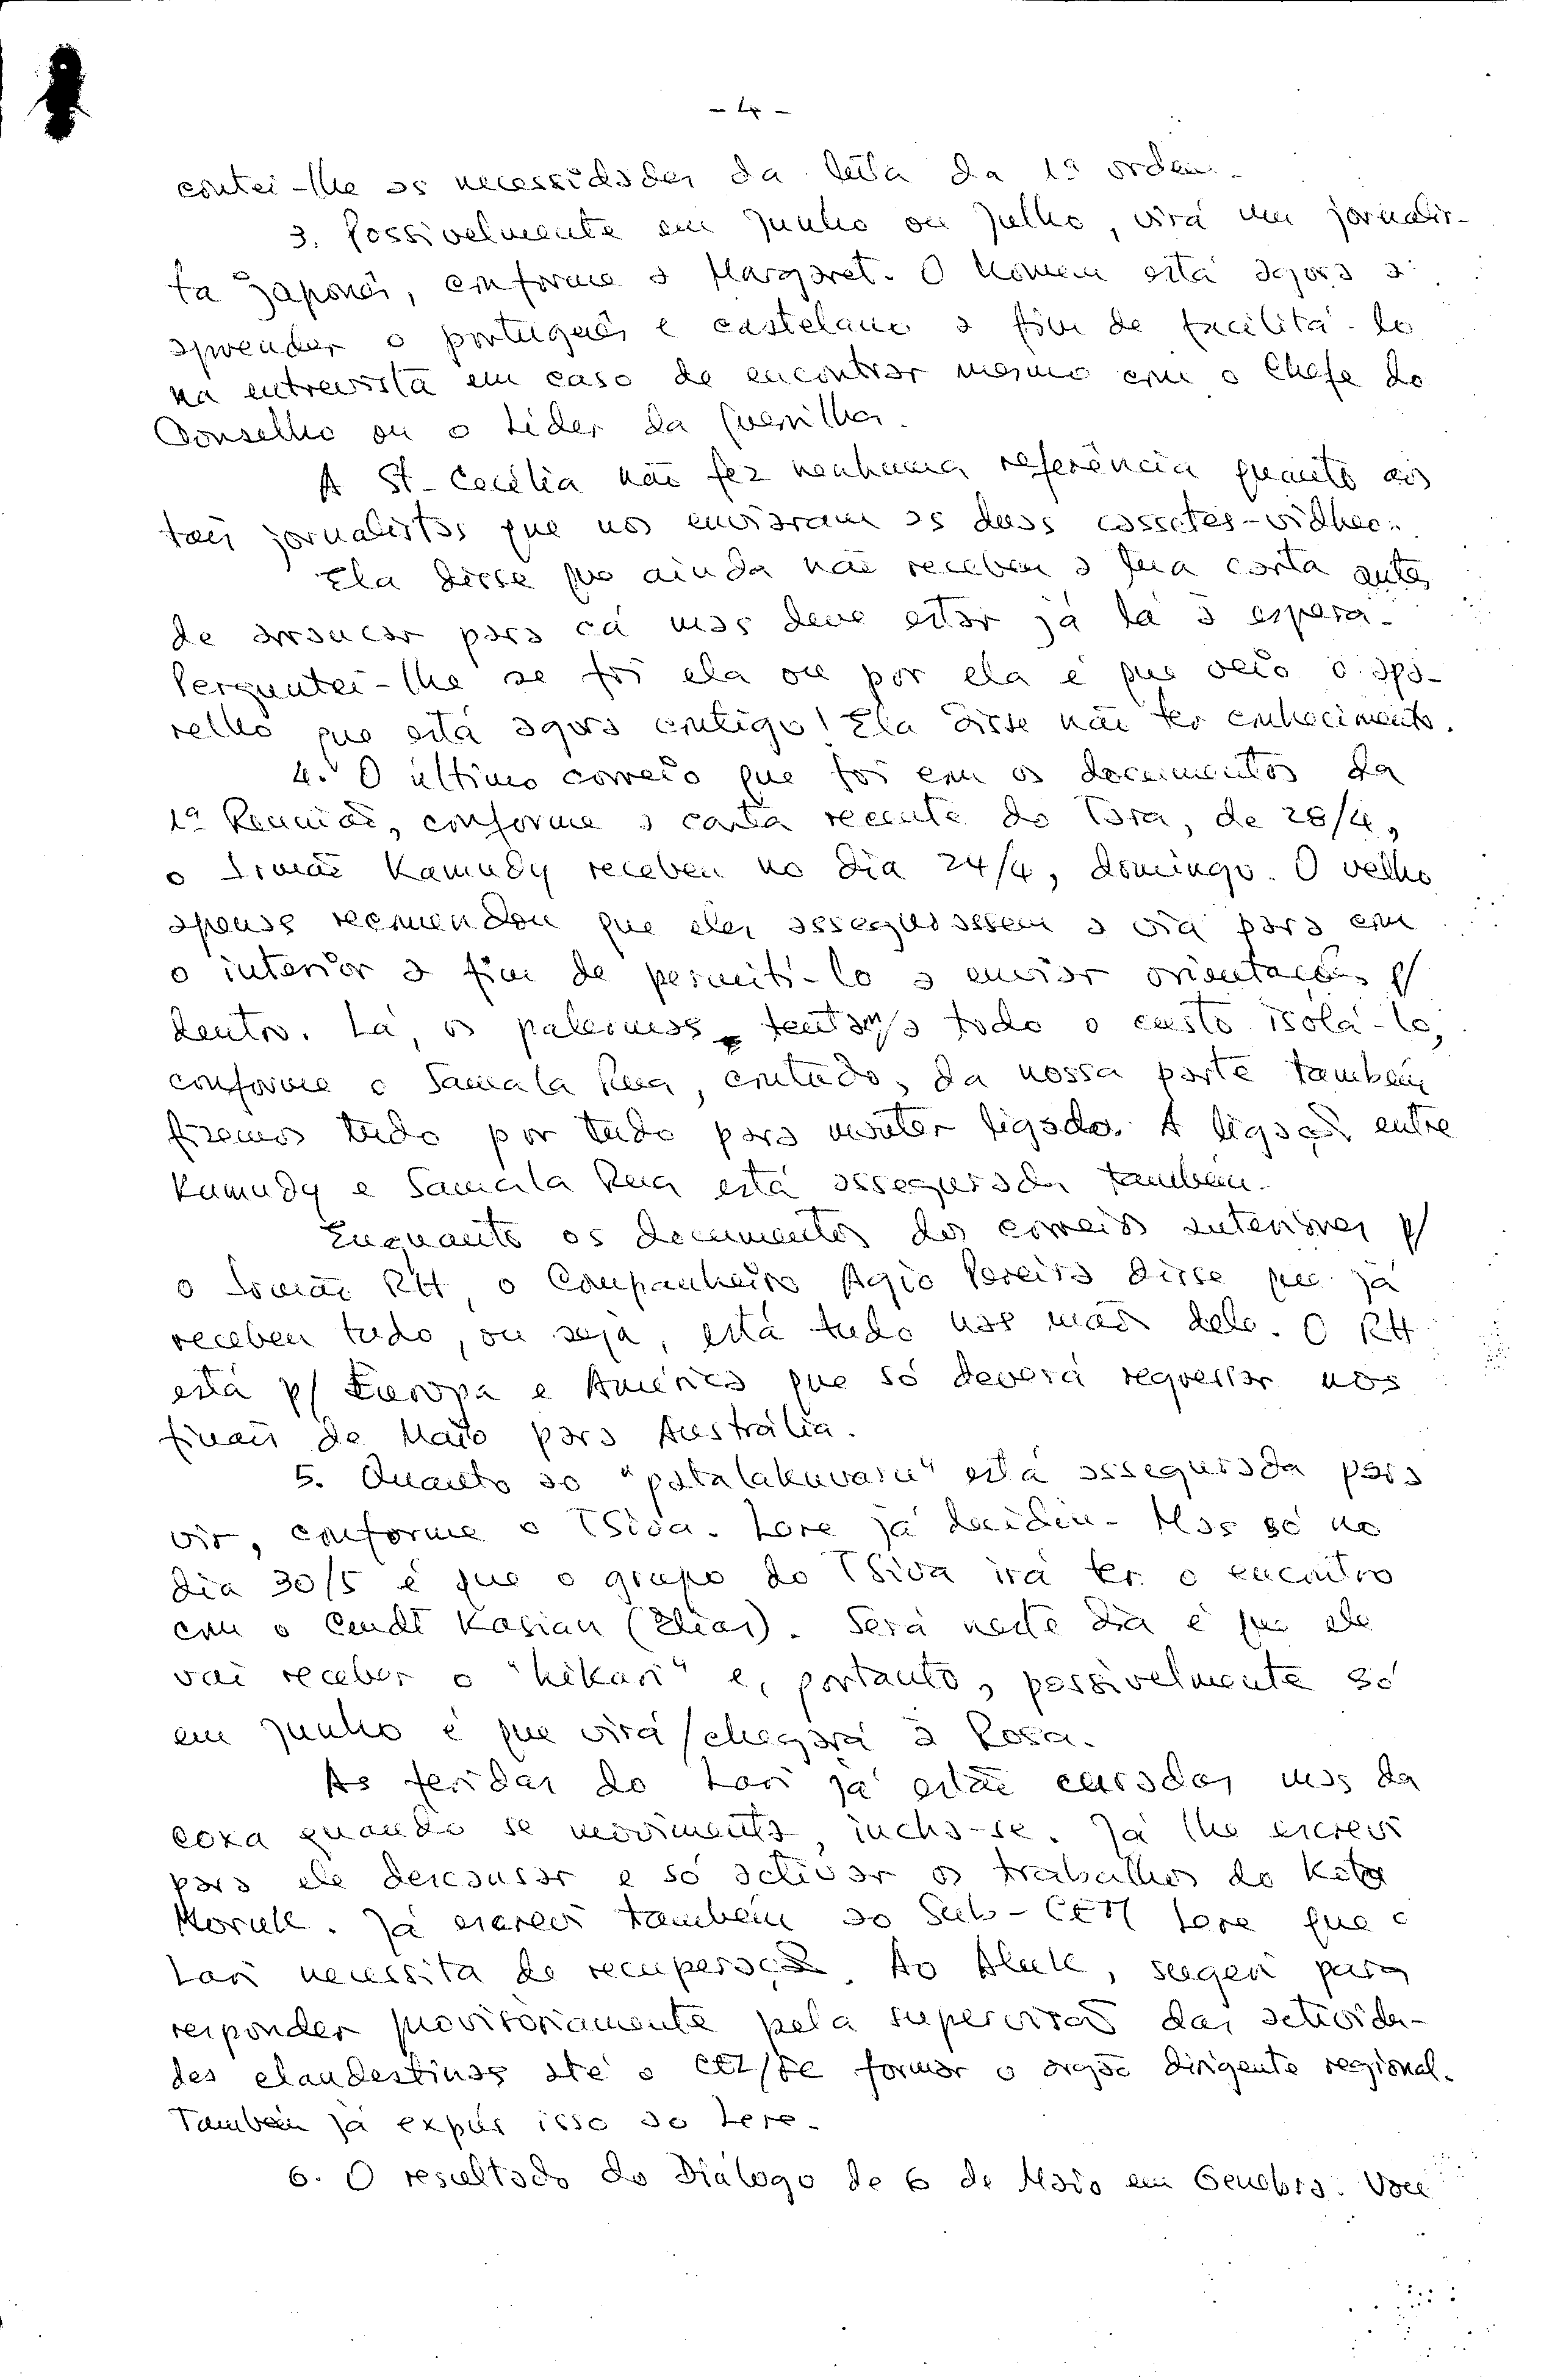 - 4 -
contei-lhe as necessidades da luta da 1ª ordem.
3. Possivelmente em Junho ou Julho, virá um jornalis-
ta Japonês, conforme a Margaret. O homem está agora a
aprender o português e castelano a fim de facilitá-lo
na entrevista em caso de encontrar mesmo com o Chefe do
Conselho ou o Líder da Guerrilha.
A St. Cecília não fez nenhuma referência quanto aos
tais jornalistas que nos enviaram as duas cassetes-vidheo.
Ela disse que ainda não recebeu a tua carta antes
de arrancar para cá mas deve estar já lá à espera.
Perguntei-lhe se foi ela ou por ela é que veio o apa-
relho que está agora contigo! Ela disse não ter conhecimento.
4. O último correio que foi com os documentos da
1ª Reunião, conforme a carta recente do de 28/4,
o Irmão Kamudy recebeu no dia 24/4, domingo. O velho
apenas recomendou que eles assegurassem a via para com
o interior a fim de permiti-lo a enviar orientações p/
dentro. Lá, os palermas tentam a todo o custo isolá-lo,
conforme o Samala Rua, contudo, da nossa parte também
fizemos tudo por tudo para manter ligado. A ligação entre
Kamudy e Samala Rua está assegurada também.
Enquanto os documentos dos correios anteriores p/
o Irmão RH, o Companheiro Agio Pereira disse que já
recebeu tudo, ou seja, está tudo nas mãos dele. O RH
está p/ Europa e América que só deverá regressar nos
finais de Maio para Austrália.
5. Quanto ao "patalakuvaru" está assegurada para
vir, conforme o Tsiva. Lere já decidiu. Mas só no
dia 30/5 é que o grupo do Tsiva irá ter o encontro
com o Cmdt Kasian (Elias). Será neste dia é que ele
vai receber o "hikari" e, portanto, possivelmente só
em Junho é que virá/chegará à Rosa.
As feridas do Lari já estão curadas mas da
coxa quando se movimenta, incha-se. Já lhe escrevi
para ele descansar e só activar os trabalhos do
Já escrevi também ao Sub-CEM Lere que o
Lari necessita de recuperação. Ao sugeri para
responder provisoriamente pela supervisão das activida-
des clandestinas até o formar o orgão dirigente regional.
Também já expus isso ao Lere.
6. O resultado do Diálogo de 6 de Maio em Genebra. Você